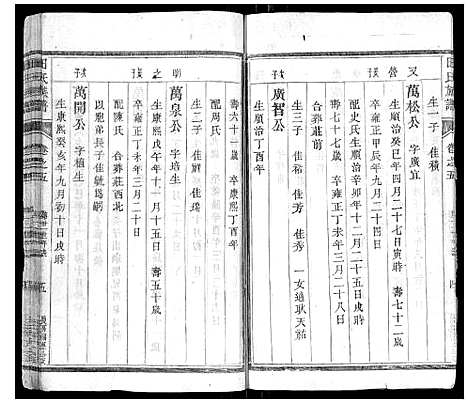 生一子 佳積
萬松公 字廣宜
生順治癸巳年四月二十七日寅時 壽七十二歲
卒雍正甲辰年三月二十四日
配史氏生順治辛卯年十月二十日戌時
壽七十七歲卒雍正丁未年三月二十八日
合葬莊前
廣智公
生三子 佳積 佳芳 佳秀 一女適耿天祐
生順治丁酉年
壽六十一歲 卒康熙丁酉年
配周氏
生二子 佳 佳
萬泉公 字培生
生康熙戊午年十一月十五日 壽五十歲
卒雍正丁未年三月二十二日
配陳氏 合葬莊西北
以胞弟長子佳毓爲嗣
萬開公 字植生
生康熙癸亥年九月初十日戌時
田氏族譜 卷之五 五